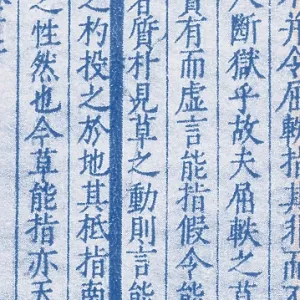 并令屈軼指其
人斷獄乎故夫屈軼之草
實有而虛言能指假令能
者質朴見草之動則言能
之杓投之於地其柢指南
之性然也今草能指亦天